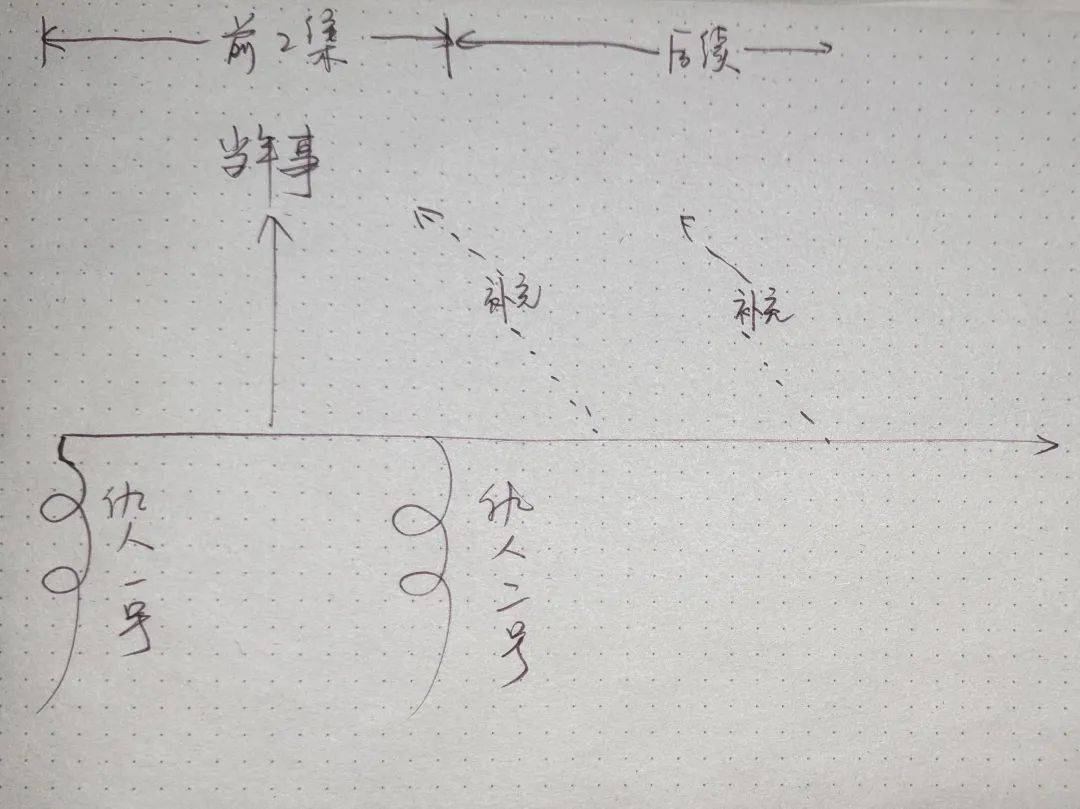 前2集
后续
当年事
补充
补充
仇人一号
仇人二号